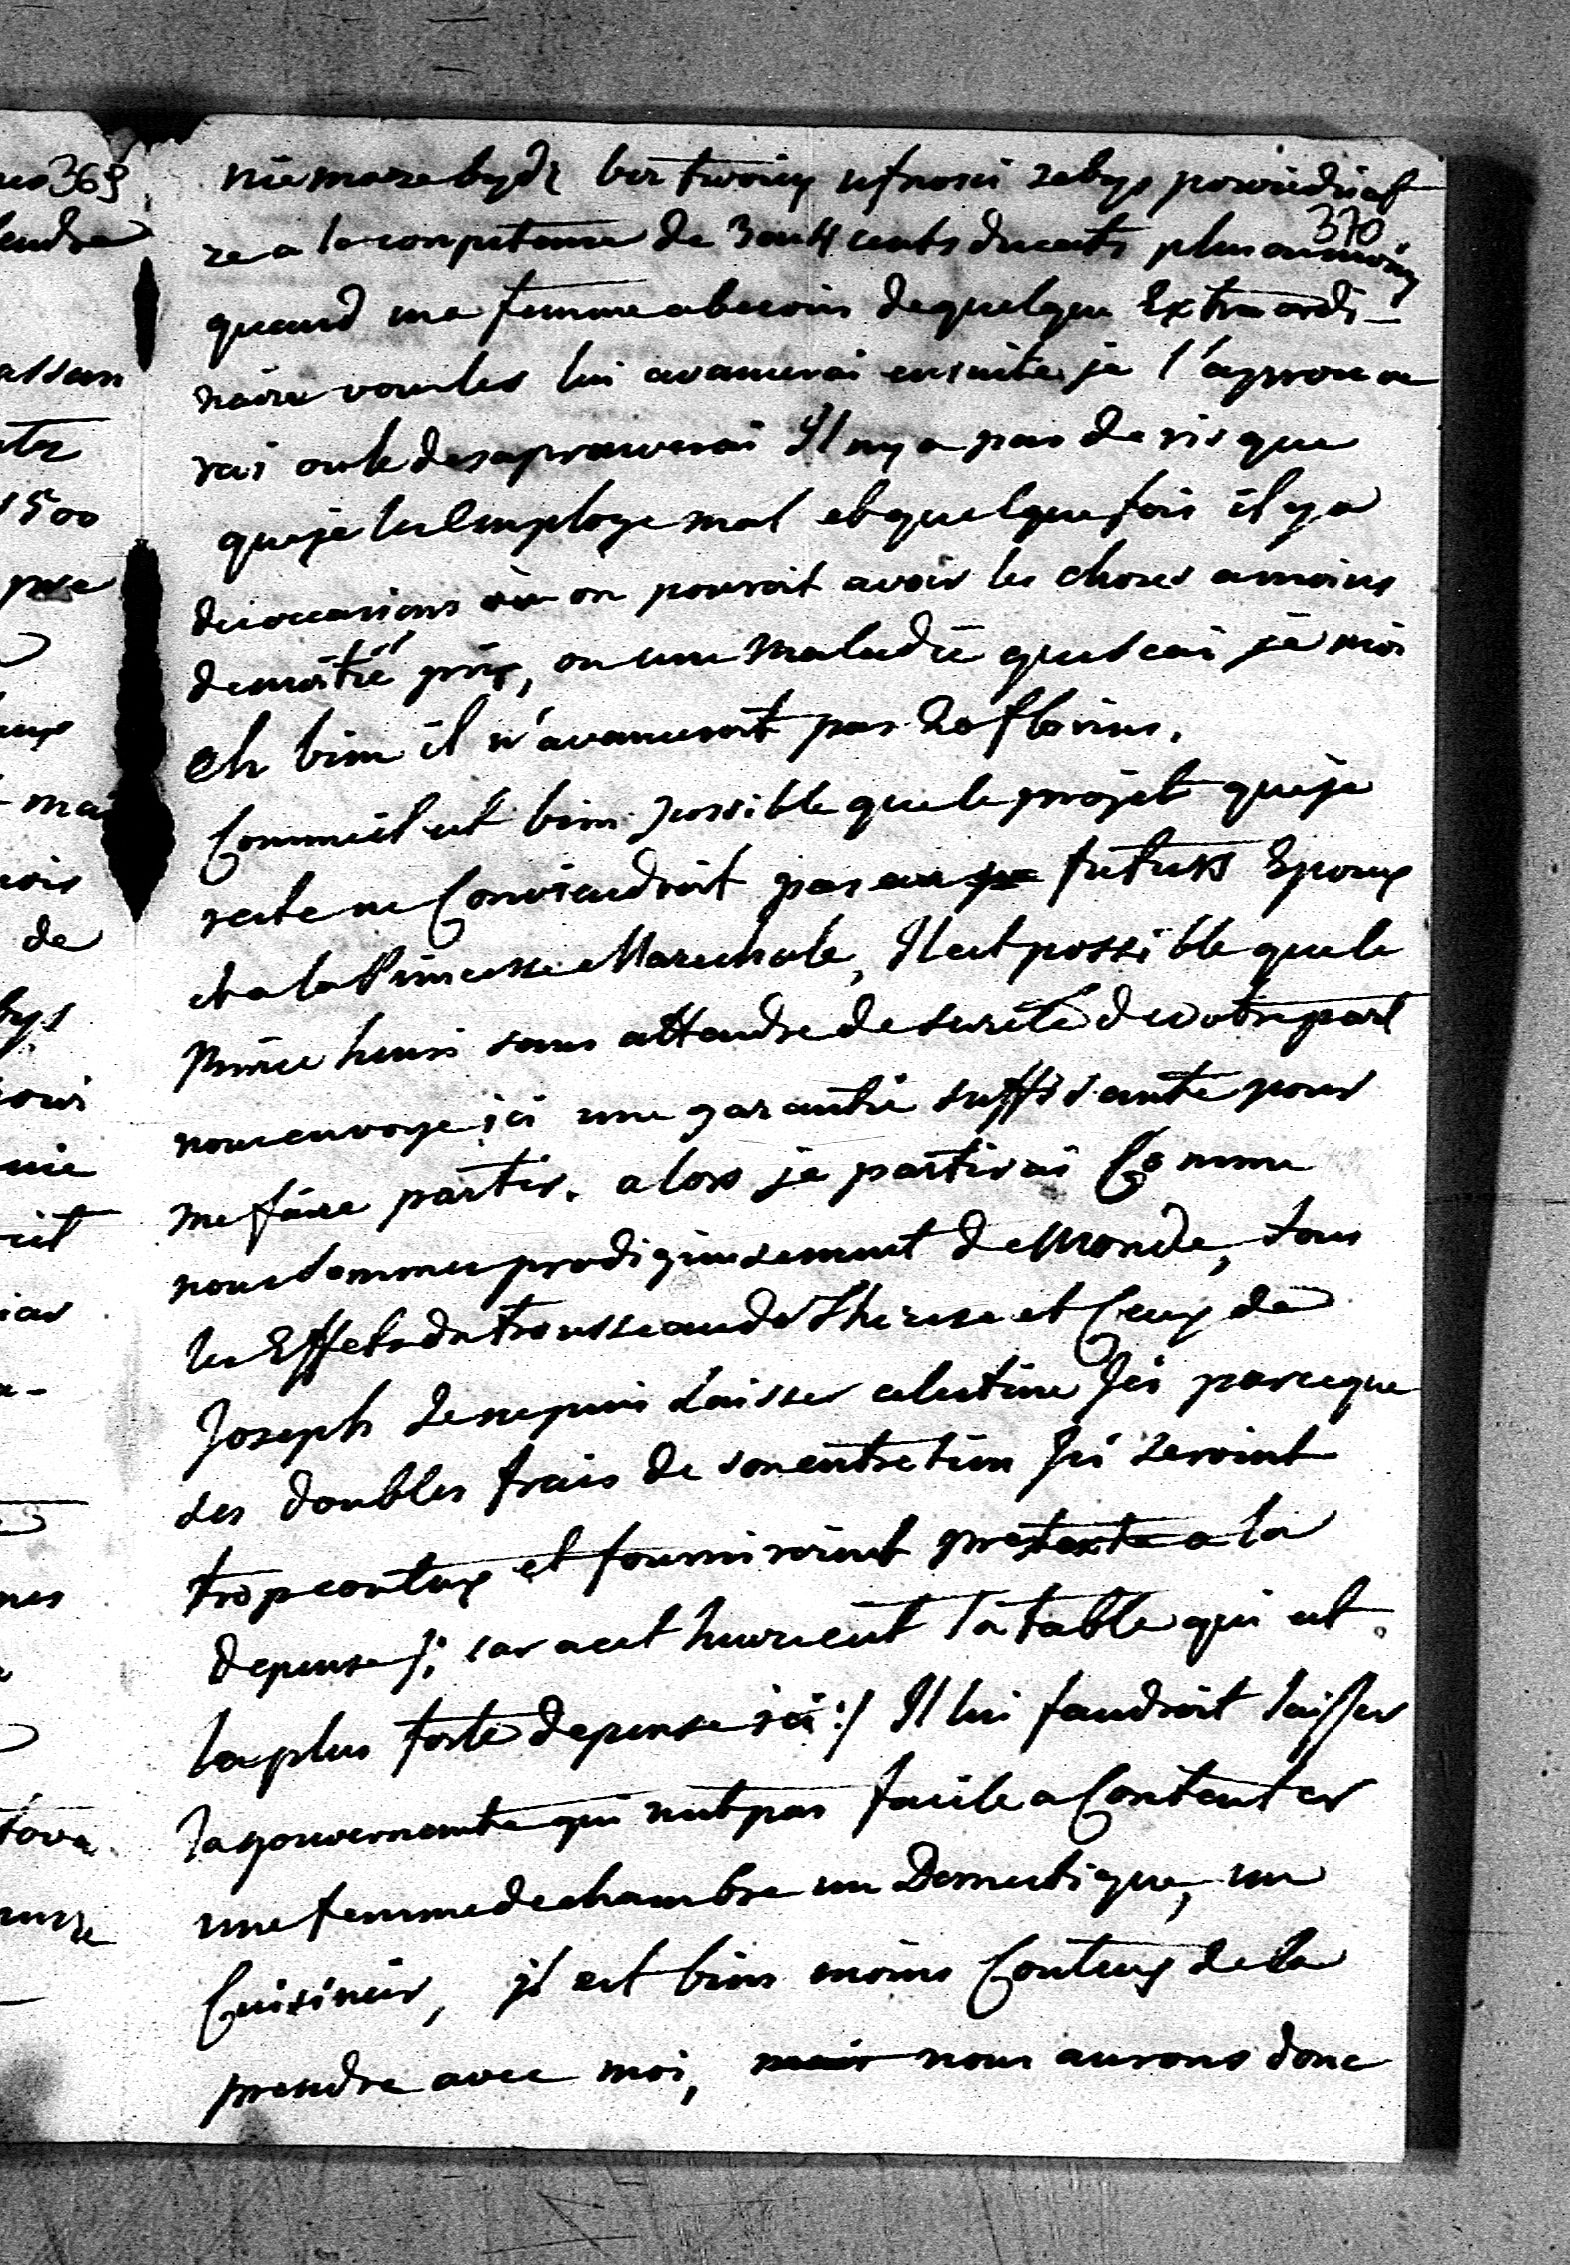 nie moze bydz bez twoiey ufnosci zebys powiedział
370
ze a la conpetence de 3 ou 4 cents ducats plus ou moins
quand ma femme a besoin de quelque Extraordi-
naire vous les lui avancerai ensuite je l'approuve
rai ou le desaprouverai Il ny a pas de risque
que je les Employe mal et quelque fois il y a
des occasions ou on pouroit avoir les choses a moins
de moitié prix, ou une Maladie que scai je moi
eh bien il n'avanceroit pas 20 florins.
Comme il est bien possible que le projet que je
reste ne Conviendroit pas aux futurs Epoux
et a la Princesse Marechale, Il est possible que le
Prince henri sans attendre de sureté de votre part
nous envoye ici une garantie suffisante pour
me faire partir. alors je partirai Comme
nous sommes prodigieusement de Monde, tous
les Effets du trousseau de Therese et Ceux de
Joseph Je ne puis laisser celestine Ici parceque
les doubles frais de son entretien Ici seroint
trop couteux et fourniroint pretexte a la
depense /: car a cet heure c'est la table qui est
la plus forte depense ici :/ Il lui faudroit laisser
la gouvernente qui n'est pas facile a Contenter
une femme de chambre un Domestique, un
Cuisinier, il est bien moins Couteux de la
prendre avec moi, nous aurons donc